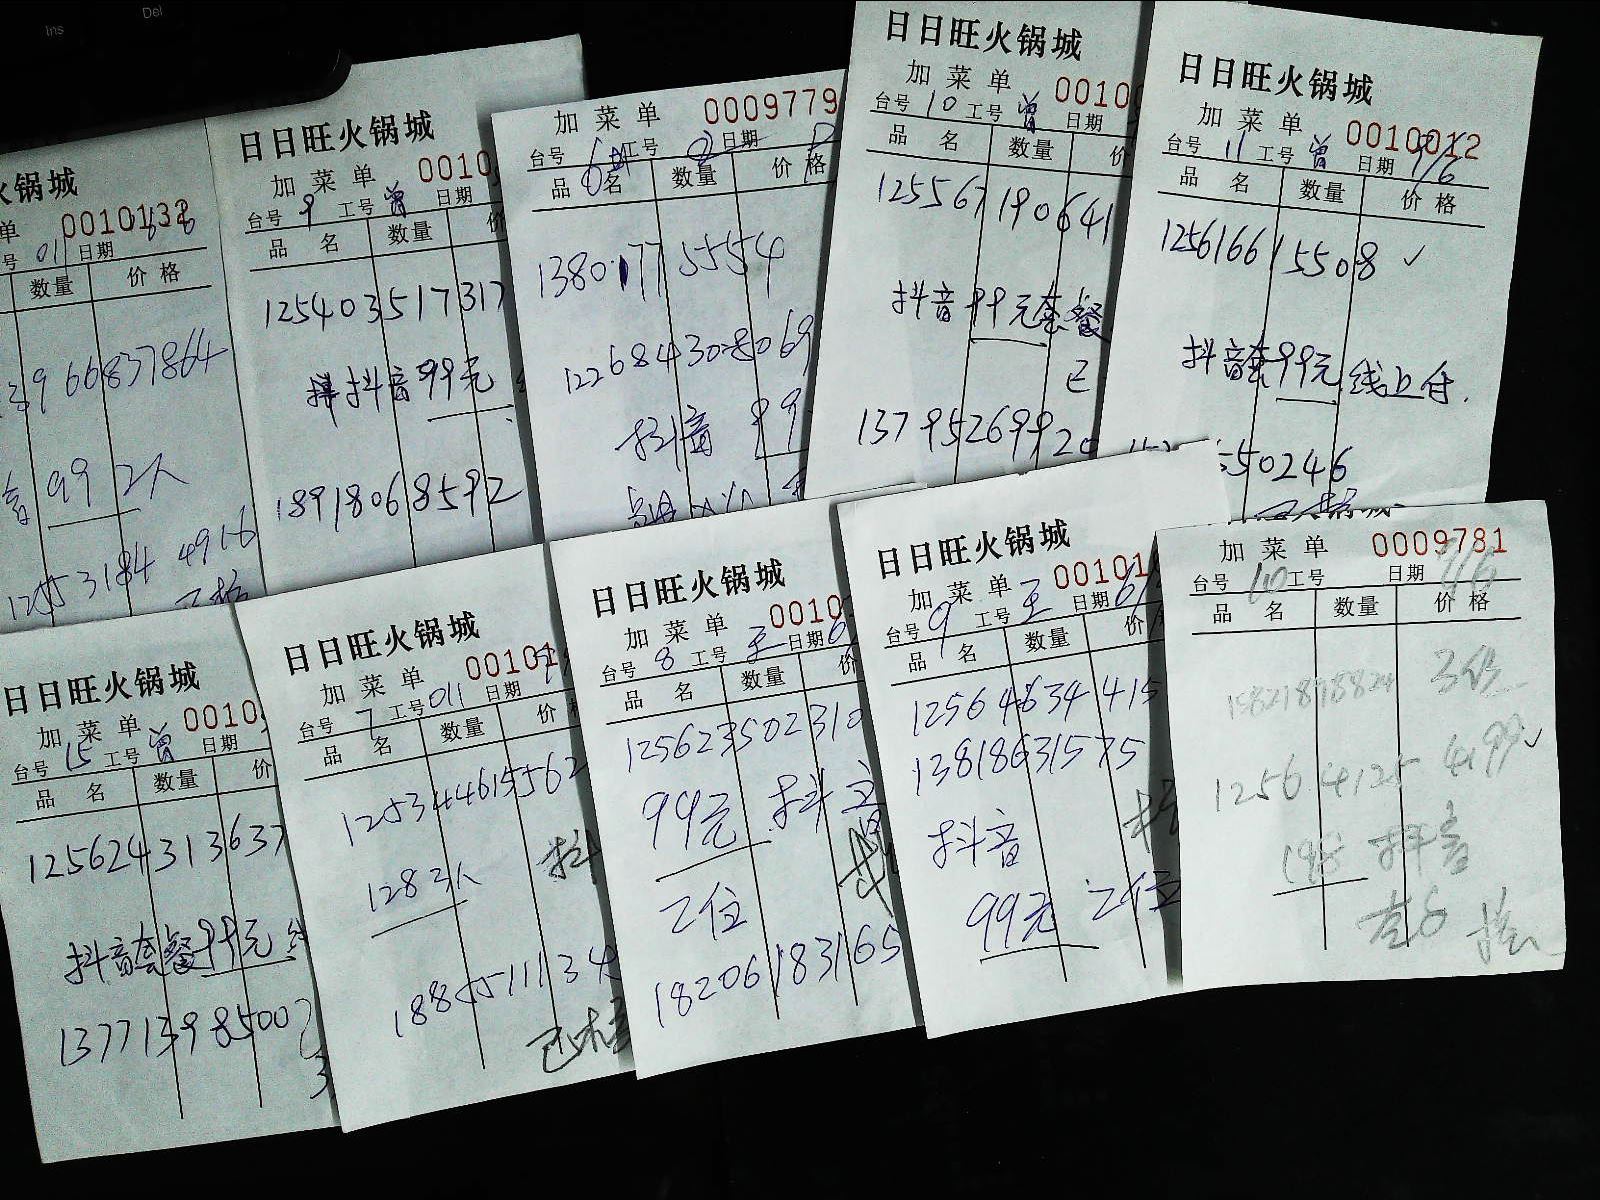 Ins
Del
火锅城
单 0010132
号 011 日期
数量 价格
13966837864
音 99 2人
12553184 4916
日日旺火锅城
加菜单 0010
台号 9 工号 曾 日期
品名 数量 价
125403517317
抖音99元
18918068592
加菜单 0009779
台号 工号 日期
品名 数量 价格
13801775554
1226843028069
抖音 99
日日旺火锅城
加菜单 0010
台号 10 工号 曾 日期
品名 数量 价
125567190641
抖音99元套餐
已
1379526992
日日旺火锅城
加菜单 0010012
台号 11 工号 曾 日期 9/6
品名 数量 价格
125616615508 ✓
抖音套99元 线上付.
550246
日日旺火锅城
加菜单 0010
台号 15 工号 曾 日期
品名 数量 价
125624313637
抖音套餐99元
13771398500
日日旺火锅城
加菜单 00101
台号 7 工号 011 日期
品名 数量 价
125344615562
抖
128 3人
188551113
已核
日日旺火锅城
加菜单 0010
台号 8 工号 王 日期 6
品名 数量 价
125623502310
99元 抖音
2位
18206183165
日日旺火锅城
加菜单 00101
台号 9 工号 王 日期 6/
品名 数量 价
12564634415
13818631575
抖音
99元 2位
加菜单 0009781
台号 10 工号 日期 7/6
品名 数量 价格
15821878824 3位
1256 4125 4199 ✓
198 抖音